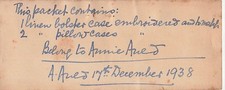 This packet contains:
1 linen bolster case embroidered and to match
2 pillowcases "
Belong to Annie Aued
A. Aued 17th December 1938